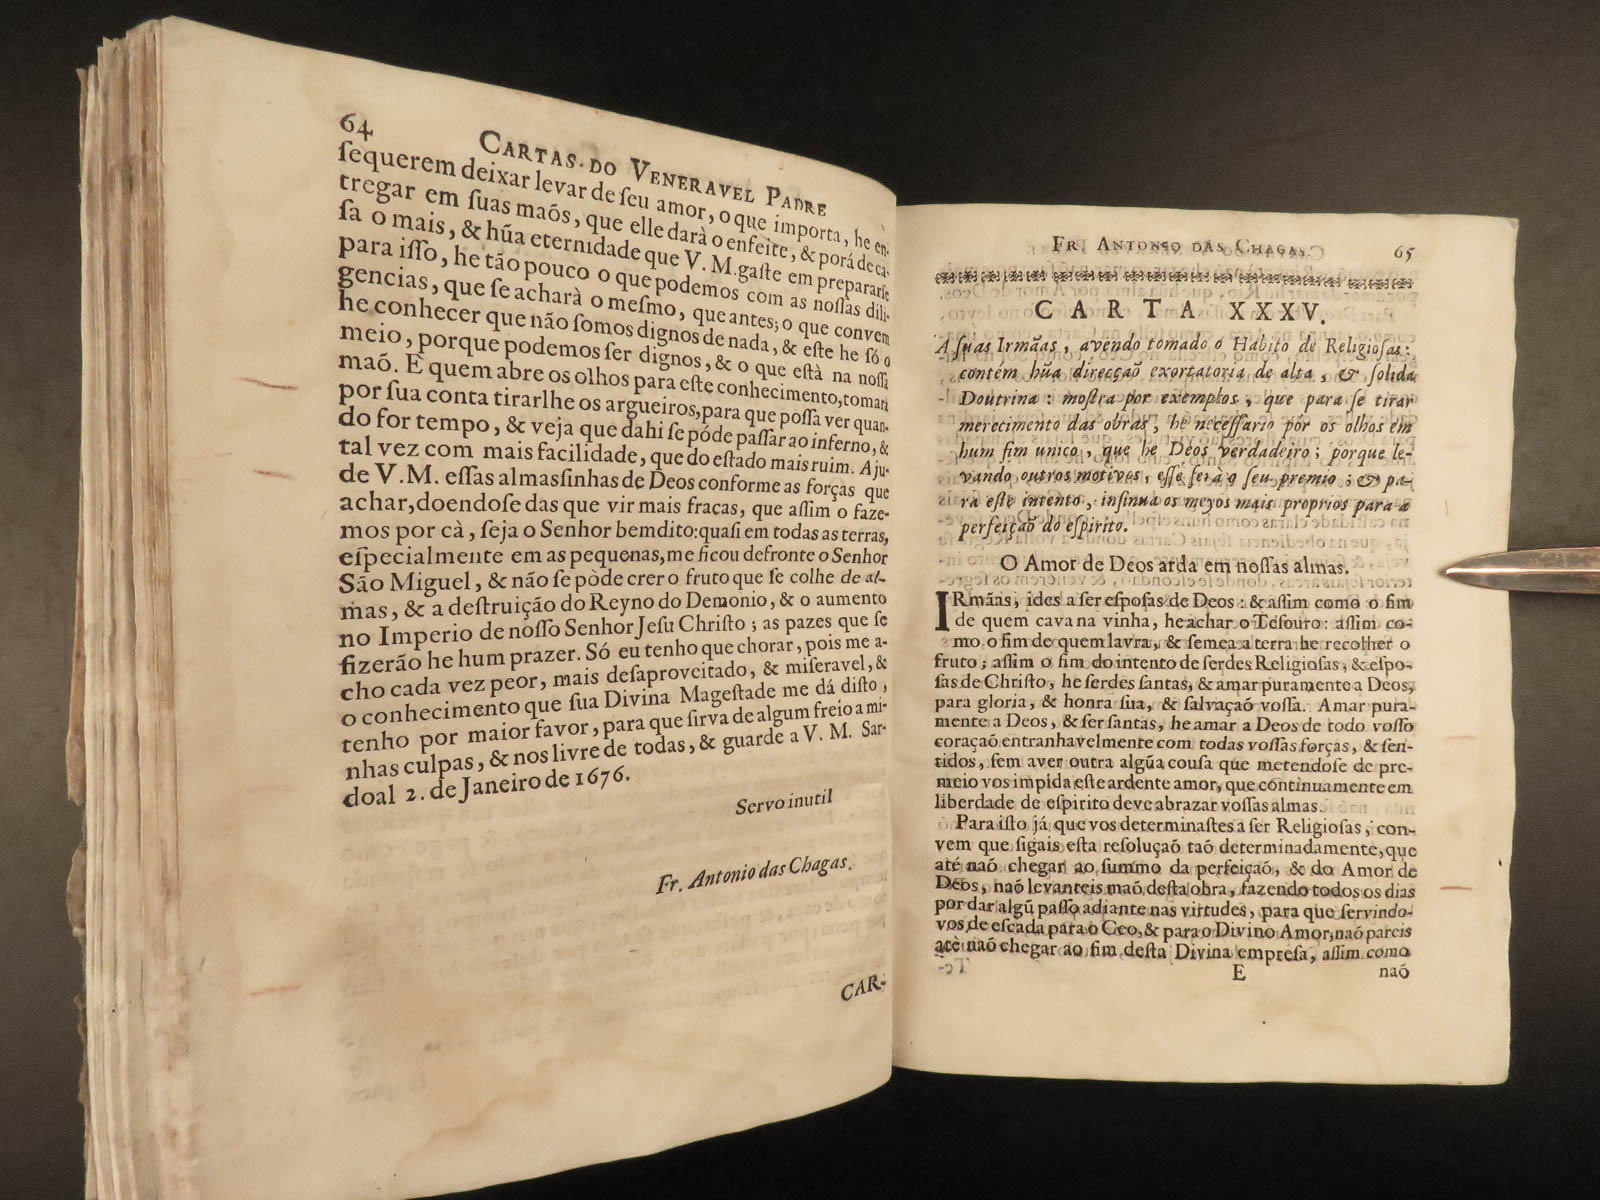 64
CARTAS DO VENERAVEL PADRE
ſequerem deixar levar de ſeu amor, o que importa, he en-
tregar em ſuas maõs, que elle darà o enfeite, & porá de ca-
ſa o mais, & hũa eternidade que V. M. gaſte em prepararſe
para iſſo, he tão pouco o que podemos com as noſſas dili-
gencias, que ſe acharà o meſmo, que antes; o que convem
he conhecer que não ſomos dignos de nada, & eſte he ſó o
meio, porque podemos ſer dignos, & o que eſtà na noſſa
maõ. E quem abre os olhos para eſte conhecimento, tomari
por ſua conta tirarlhe os argueiros, para que poſſa ver quan-
do for tempo, & veja que dahi ſe póde paſſar ao inferno, &
tal vez com mais facilidade, que do eſtado mais ruim. Aju-
de V. M. eſſas almasſinhas de Deos conforme as forças que
achar, doendoſe das que vir mais fracas, que aſſim o faze-
mos por cà, ſeja o Senhor bemdito: quaſi em todas as terras,
eſpecialmente em as pequenas, me ficou defronte o Senhor
São Miguel, & não ſe pòde crer o fruto que ſe colhe de al-
mas, & a deſtruição do Reyno do Demonio, & o aumento
no Imperio de noſſo Senhor Jeſu Chriſto; as pazes que ſe
fizerão he hum prazer. Só eu tenho que chorar, pois me a-
cho cada vez peor, mais deſaproveitado, & miſeravel, &
o conhecimento que ſua Divina Mageſtade me dá diſto,
tenho por maior favor, para que ſirva de algum freio a mi-
nhas culpas, & nos livre de todas, & guarde a V. M. Sar-
doal 2. de Janeiro de 1676.
Servo inutil
Fr. Antonio das Chagas.
CAR-
FR. ANTONIO DAS CHAGAS.
65
CARTA XXXV.
A ſuas Irmãas, avendo tomado o Habito de Religioſas:
contém hũa direcçaõ exortatoria de alta, & ſolida
Doutrina: moſtra por exemplos, que para ſe tirar
merecimento das obras, he neceſſario pór os olhos em
hum fim unico, que he Deos verdadeiro; porque le-
vando outros motivos, eſſe ſerà o ſeu premio; & pa-
ra eſte intento, inſinua os meyos mais proprios para a
perfeiçaõ do eſpirito.
O Amor de Deos arda em noſſas almas.
IRmãs, ides a ſer eſpoſas de Deos: & aſſim como o fim
de quem cava na vinha, he achar o Teſouro: aſſim co-
mo o fim de quem lavra, & ſemea a terra he recolher o
fruto; aſſim o fim do intento de ſerdes Religioſas, & eſpo-
ſas de Chriſto, he ſerdes ſantas, & amar puramente a Deos,
para gloria, & honra ſua, & ſalvaçaõ voſſa. Amar pura-
mente a Deos, & ſer ſantas, he amar a Deos de todo voſſo
coraçaõ entranhavelmente com todas voſſas forças, & ſen-
tidos, ſem aver outra algũa couſa que metendoſe de pre-
meio vos impida eſte ardente amor, que continuamente em
liberdade de eſpirito deve abrazar voſſas almas.
Para iſto já que vos determinaſtes a ſer Religioſas, con-
vem que ſigais eſta reſoluçaõ taõ determinadamente, que
até naõ chegar ao ſummo da perfeiçaõ, & do Amor de
Deos, naõ levanteis maõ deſta obra, fazendo todos os dias
por dar algũ paſſo adiante nas virtudes, para que ſervindo-
vos de eſcada para o Ceo, & para o Divino Amor, naõ pareis
atè naõ chegar ao fim deſta Divina empreſa, aſſim como
E
naõ